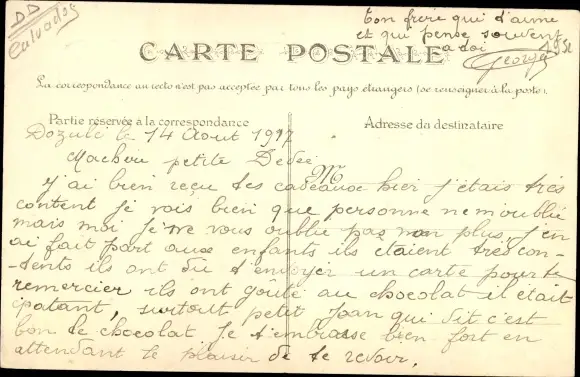 DD
Calvados
Ton frère qui t'aime
et qui pense souvent
a toi
George
CARTE POSTALE
La correspondance au recto n'est pas acceptée par tous les pays étrangers (se renseigner à la poste).
Partie réservée à la correspondance
Adresse du destinataire
Dozulé le 14 Aout 1917
Ma chere petite Dedée
M
J'ai bien reçu tes cadeaux hier j'étais très
content je vois bien que personne ne m'oublie
mais moi je ne vous oublie pas non plus j'en
ai fait part aux enfants ils étaient très con-
-tents ils ont du t'envoyer un carte pour te
remercier ils ont goûté au chocolat il était
épatant, surtout petit Jean qui dit c'est
bon le chocolat Je t'embrasse bien fort en
attendant le plaisir de te revoir.